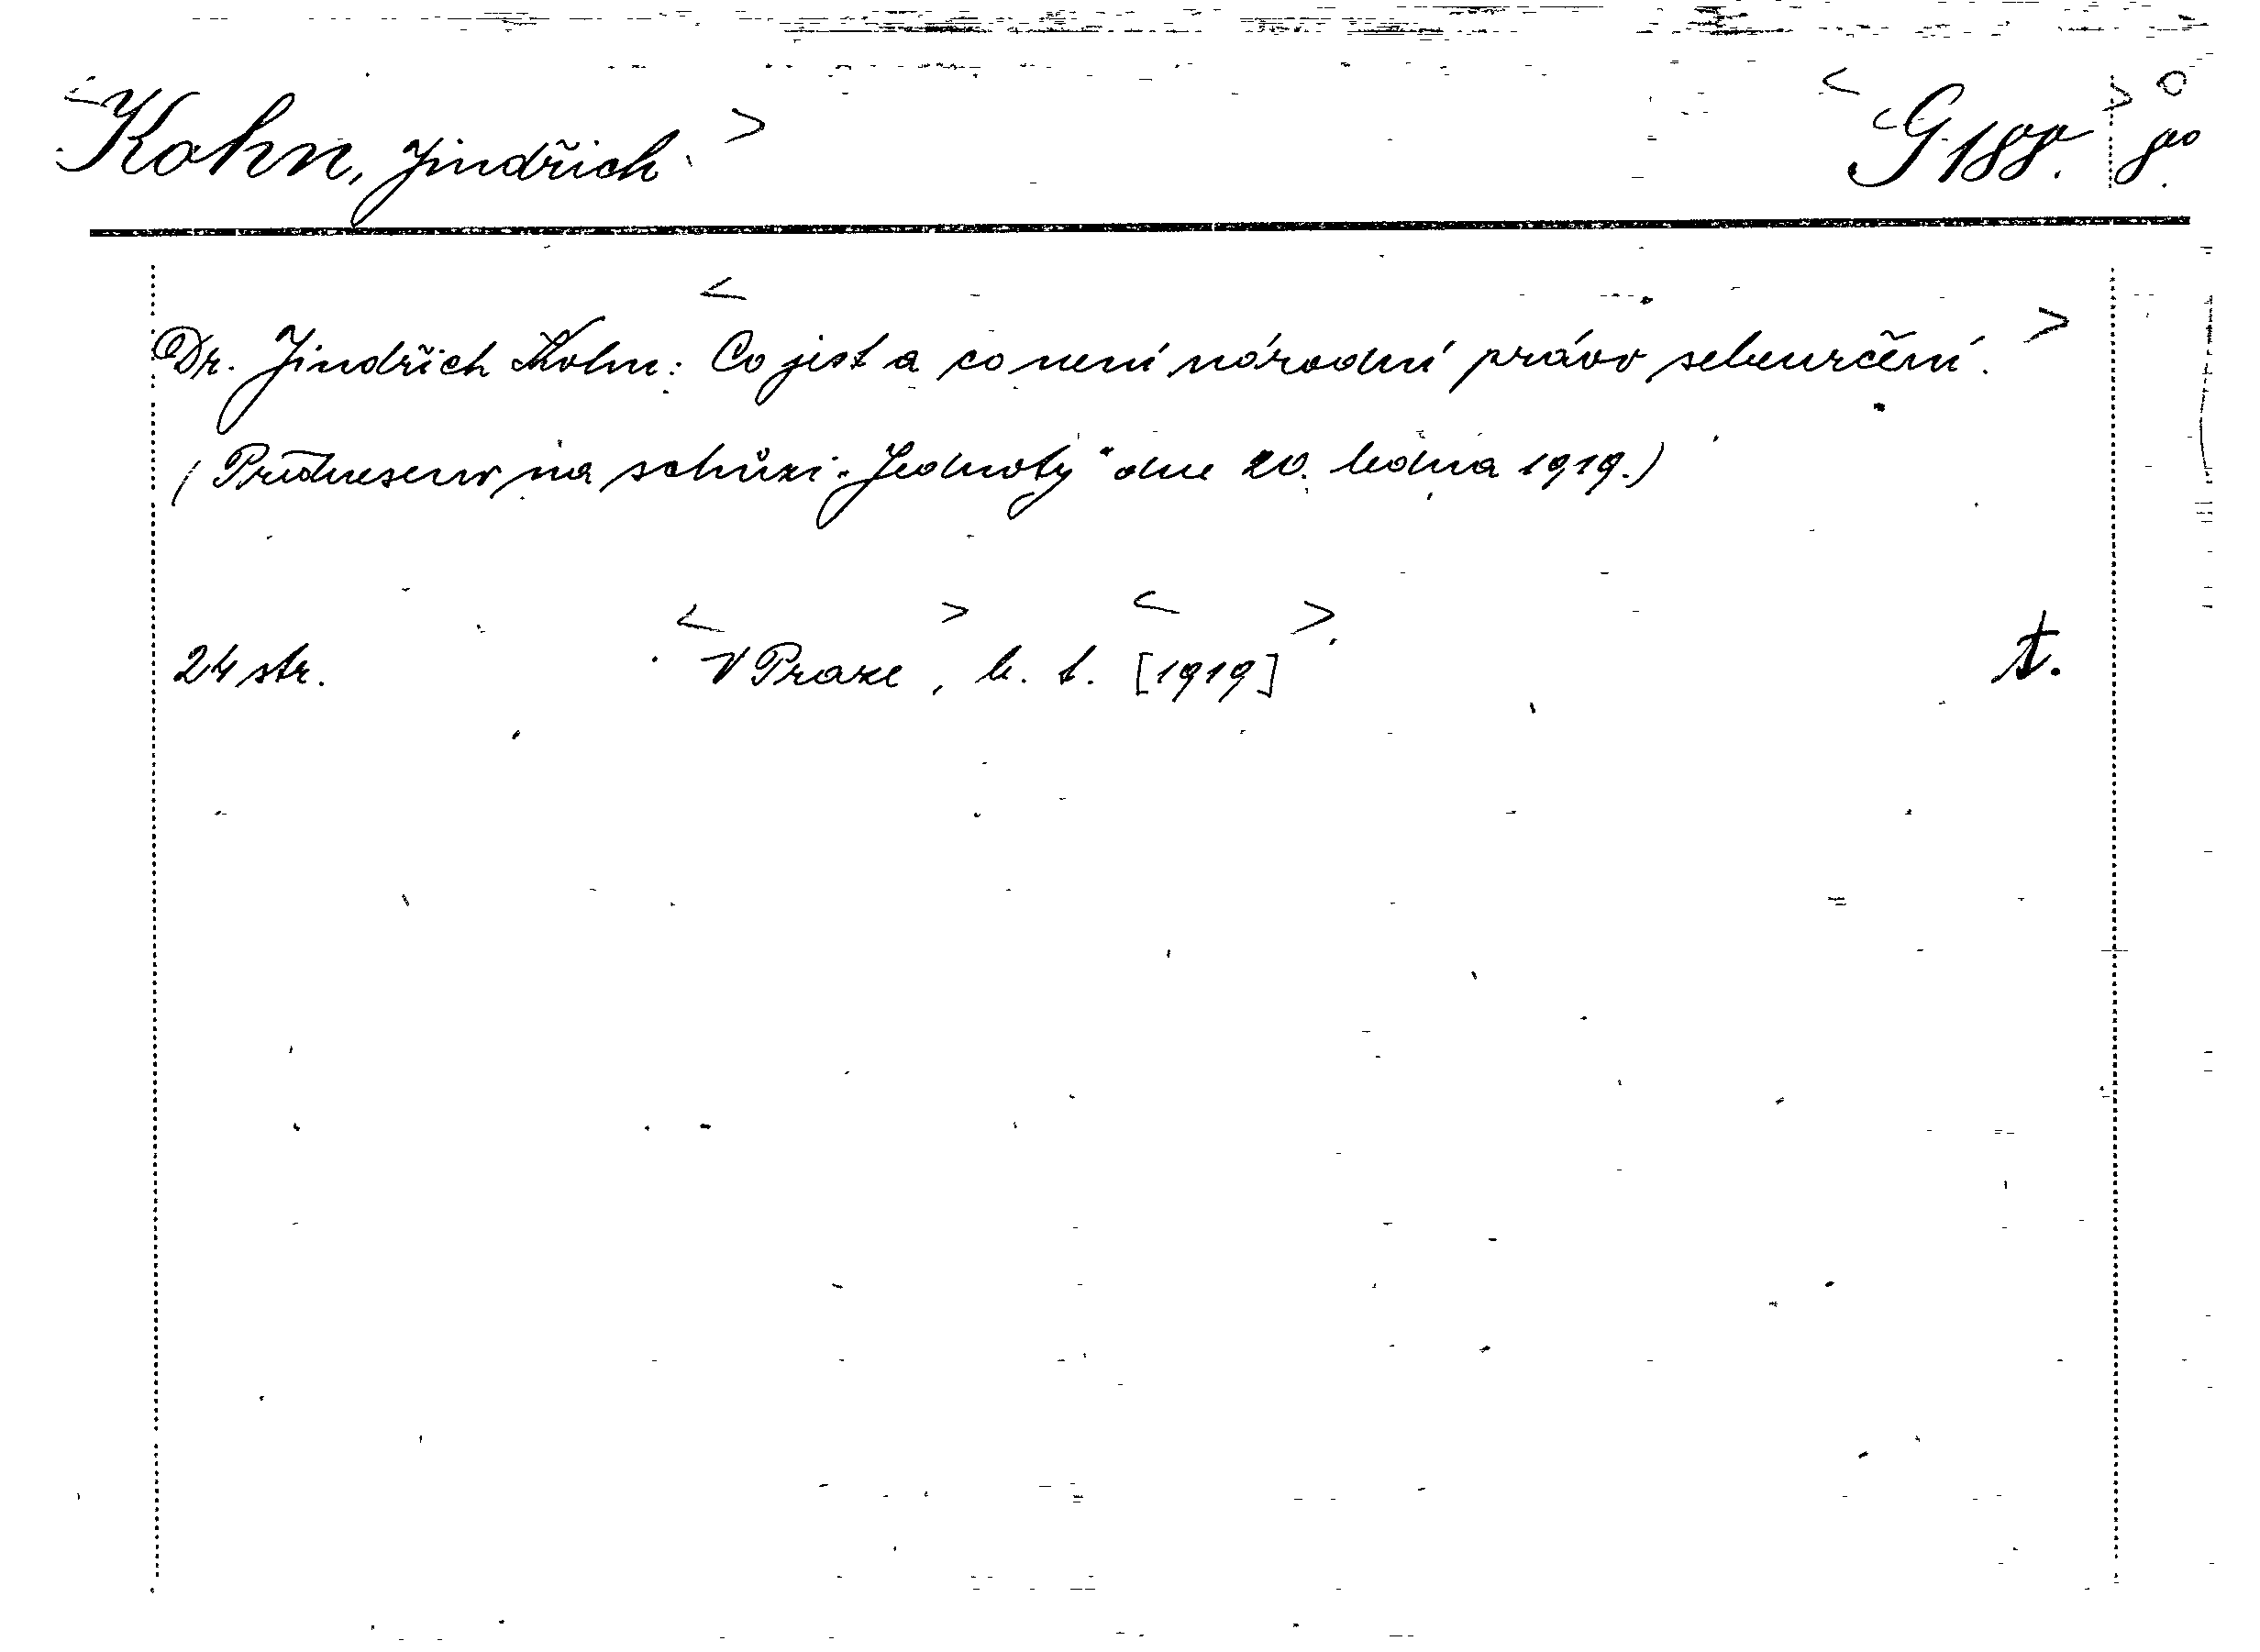 <Kohn, Jindřich> <G 188.> 8°
Dr. Jindřich Kohn: <Co jest a co není národní právo sebeurčení.>
(Předneseno na schůzi „Jednoty“ dne 20. ledna 1919.)
24 str. <V Praze>, b. t. <[1919]> t.